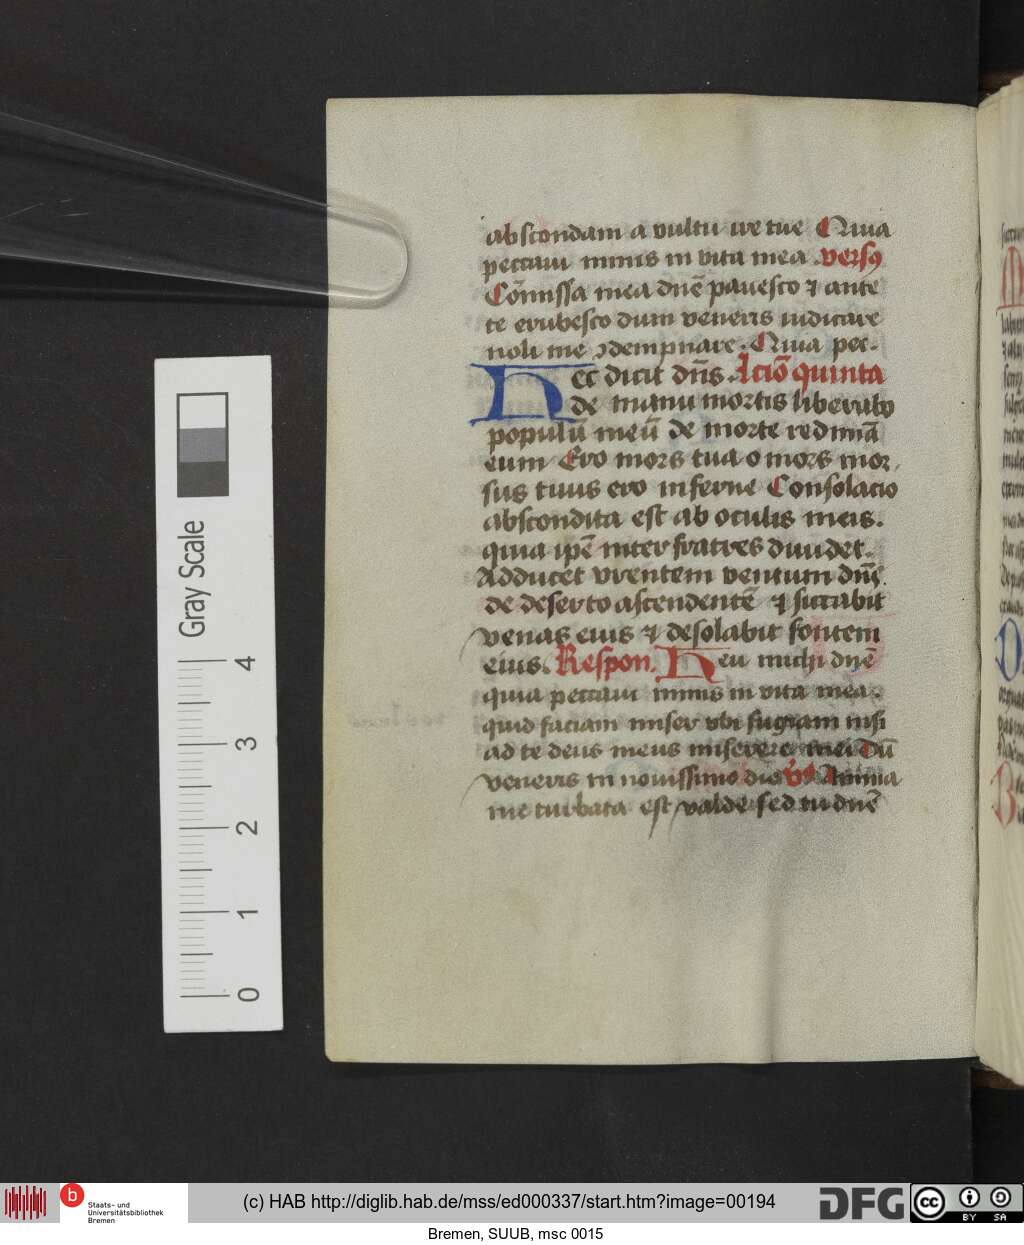 abscondam a vultu ire tue Quia
peccaui nimis in vita mea versꝰ
Cōmissa mea dn̄e pauesco ⁊ ante
te erubesco dum veneris iudicare
noli me ꝯdempnare. Quia pec.
Hec dicit dn̄s. Lcīo quinta
de manu mortis liberabo
populū meū de morte redimā
eum Ero mors tua o mors mor
sus tuus ero inferne Consolacio
abscondita est ab oculis meis.
quia ip̄e inter fratres diuidet.
Adducet vrentem ventum dn̄s.
de deserto ascendentē ⁊ siccabit
venas eius ⁊ desolabit fontem
eius. Respon. Heu michi dn̄e
quia peccaui nimis in vita mea.
quid faciam miser vbi fugiam nisi
ad te deus meus miserere mei Dū
veneris in nouissimo die Anima
mea turbata est valde sed tu dn̄e
Gray Scale
4
3
2
1
0
b Staats- und
Universitätsbibliothek
Bremen
(c) HAB http://diglib.hab.de/mss/ed000337/start.htm?image=00194
DFG
cc BY SA
Bremen, SUUB, msc 0015